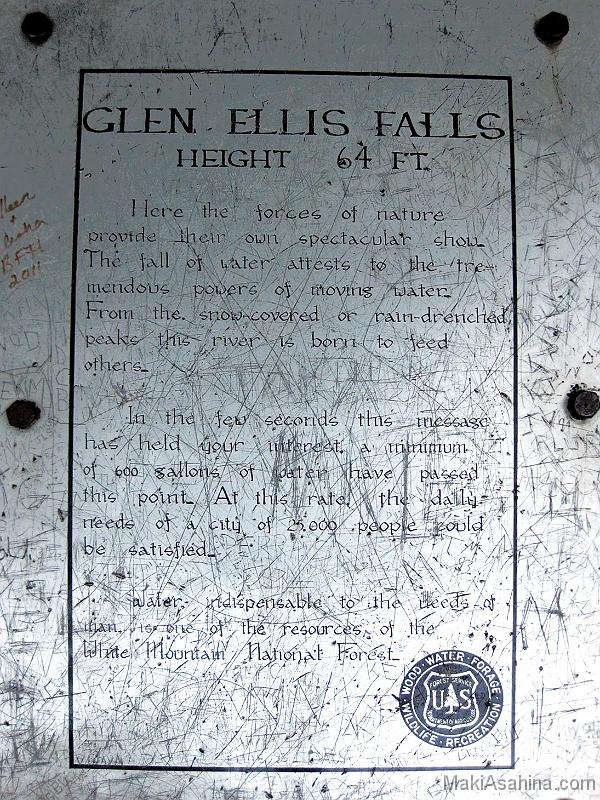 GLEN ELLIS FALLS
HEIGHT 64 FT.
Here the forces of nature
provide their own spectacular show.
The fall of water attests to the tre-
mendous powers of moving water.
From the snow-covered or rain-drenched
peaks this river is born to feed
others.
In the few seconds this message
has held your interest, a minimum
of 600 gallons of water have passed
this point. At this rate, the daily
needs of a city of 25,000 people could
be satisfied.
Water, indispensable to the needs of
man, is one of the resources of the
White Mountain National Forest.
WOOD · WATER · FORAGE
WILDLIFE · RECREATION
FOREST SERVICE
U S
DEPARTMENT OF AGRICULTURE
BFF
2011
MakiAsahina.com